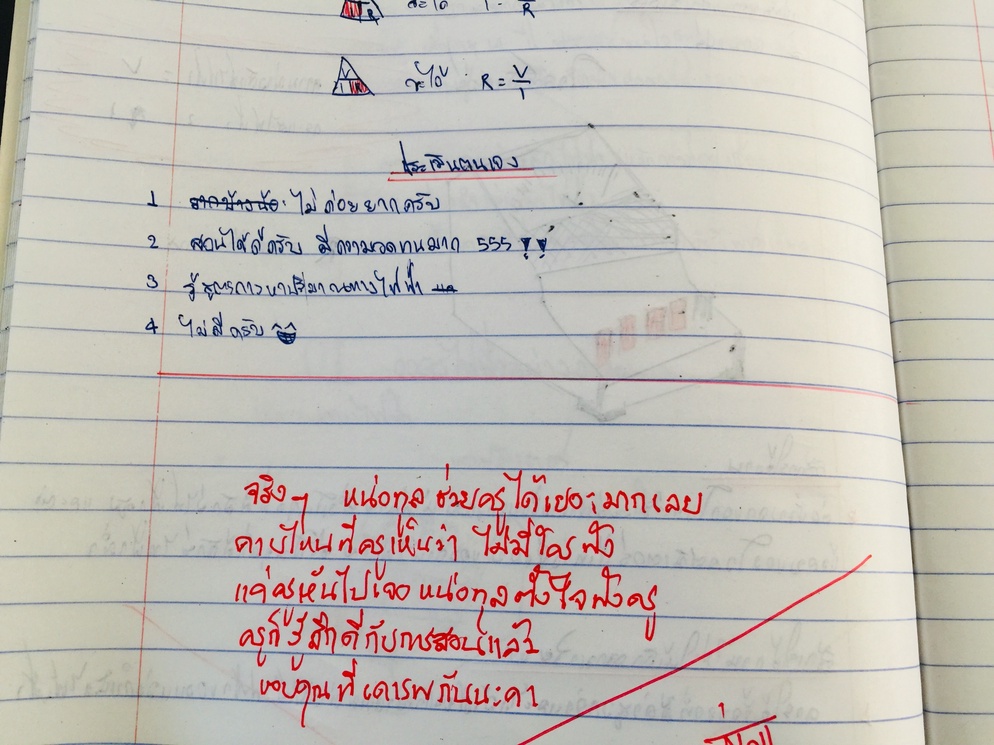 R จะได้ I = R
V I R จะได้ R = V/I
ประเมินตนเอง
1 ไม่ค่อยยากครับ
2 สอนได้ดีครับ มีความอดทนมาก 555 !!
3 รู้สูตรการหาปริมาณทางไฟฟ้า
4 ไม่มีครับ
จริง ๆ หน่อกุล ช่วยครูได้เยอะมากเลย
คาบไหนที่ครูเห็นว่า ไม่มีใครฟัง
แค่ครูหันไปเจอ หน่อกุล ตั้งใจฟังครู
ครูก็รู้สึกดีกับการสอนแล้ว
ขอบคุณที่เคารพกันนะคา